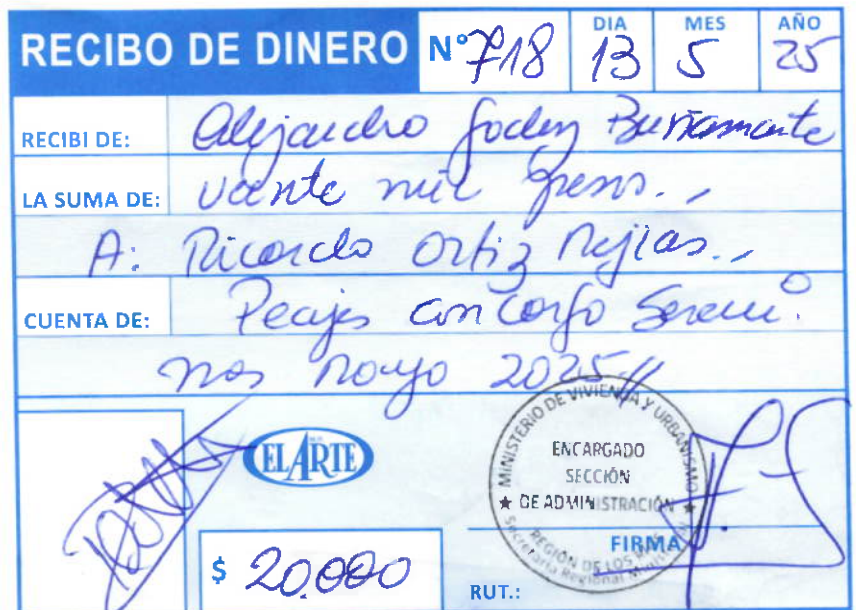 RECIBO DE DINERO N° 718 DIA 13 MES 5 AÑO 25
RECIBI DE: Alejandro Godoy Bustamante
LA SUMA DE: veinte mil pesos.,
A: Ricardo Ortiz Mejias.,
CUENTA DE: Peajes con cargo Seremi.
mes mayo 2025//
EL ARTE
MINISTERIO DE VIVIENDA Y URBANISMO
ENCARGADO
SECCIÓN
★ DE ADMINISTRACIÓN ★
REGIÓN DE LOS
Secretaría Regional
FIRMA
$ 20.000
RUT.: